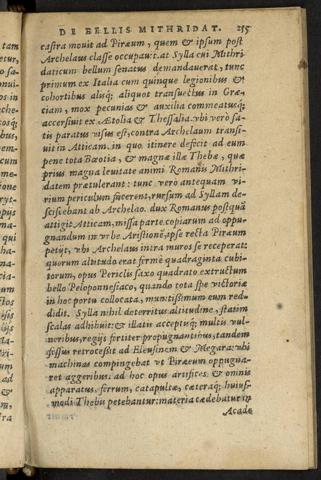 DE BELLIS MITHRIDAT. 215
castra mouit ad Piræum, quem & ipsum post
Archelaus classe occupauit. at Sylla cui Mithri
daticum bellum senatus demandauerat, tunc
primum ex Italia cum quinque legionibus &
cohortibus aliq; aliquot transuectus in Græ
ciam, mox pecunias & auxilia commeatuq;
accersiuit ex Ætolia & Thessalia. vbi verò sa-
tis paratus visus est, contra Archelaum transi-
uit in Atticam. in quo itinere defecit ad eum
pene tota Bœotia, & magnæ illæ Thebæ, quæ
prius magna leuitate animi Romanis Mithri-
datem prætulerant: tunc verò antequam vi-
rium periculum facerent, rursum ad Syllam de-
sciscebant ab Archelao. dux Romanus postquã
attigit Atticam, missa parte copiarum ad oppu-
gnandum in vrbe Aristionẽ, ipse rectà Piræum
petijt, vbi Archelaus intra muros se receperat:
quorum altitudo erat fermè quadraginta cubi-
torum, opus Periclis saxo quadrato extructum
bello Peloponnesiaco, quando tota spe victoriæ
in hoc portu collocata, munitissimum eum red-
didit. Sylla nihil deterritus altitudine, statim
scalas adhibuit: & illatis acceptisq; multis vul-
neribus, regijs fortiter propugnantibus, tandem
fessus retrocessit ad Eleusinem & Megara: vbi
machinas compingebat vt Piræeum oppugna-
ret aggeribus. ad hoc opus artifices & omnis
apparatus, ferrum, catapultæ, cæteraq; huius-
modi Thebis petebantur: materia cædebatur in
Acade